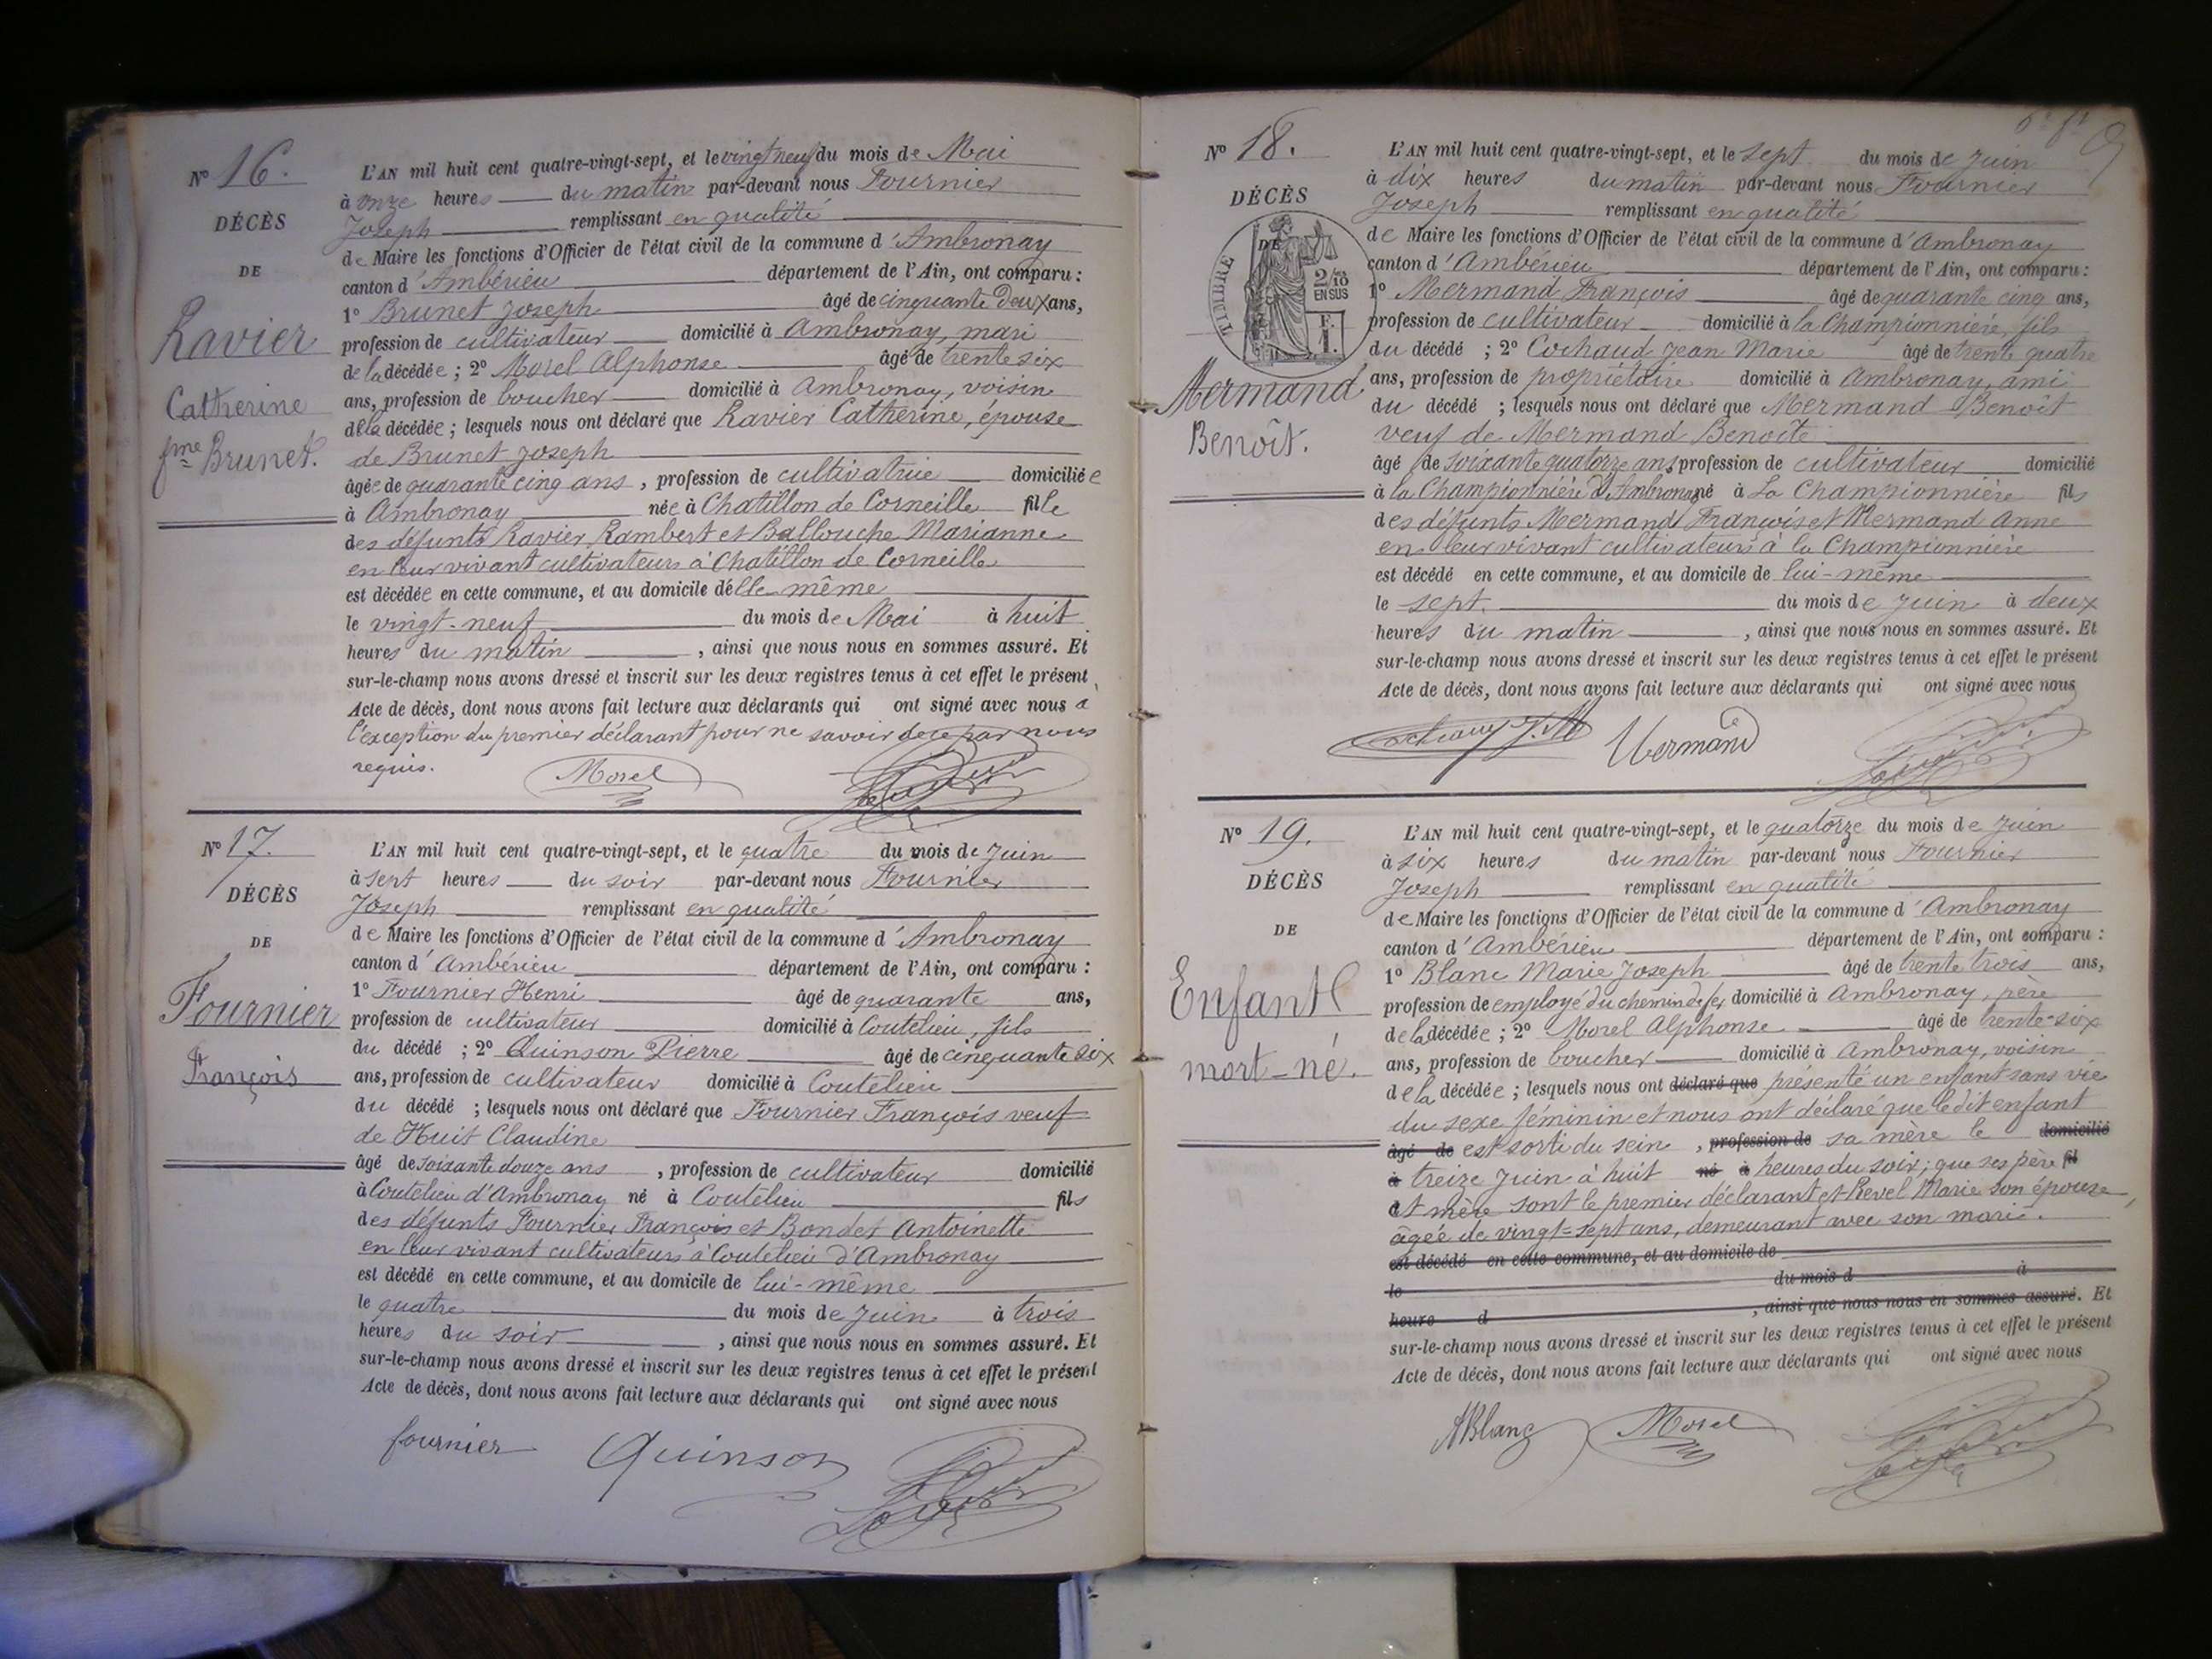 N° 16.
DÉCÈS
DE
Ravier
Catherine
fme Brunet.
L'AN mil huit cent quatre-vingt-sept, et le vingt neuf du mois de Mai
à onze heures du matin par-devant nous Fournier
Joseph remplissant en qualité
de Maire les fonctions d'Officier de l'état civil de la commune d'Ambronay
canton d'Ambérieu département de l'Ain, ont comparu :
1° Brunet Joseph âgé de cinquante deux ans,
profession de cultivateur domicilié à Ambronay, mari
de la décédée ; 2° Morel Alphonse âgé de trente six
ans, profession de boucher domicilié à Ambronay, voisin
de la décédée ; lesquels nous ont déclaré que Ravier Catherine, épouse
de Brunet Joseph
âgée de quarante cinq ans, profession de cultivatrice domiciliée
à Ambronay née à Chatillon de Corneille fille
des défunts Ravier Rambert et Ballouche Marianne
en leur vivant cultivateurs à Chatillon de Corneille
est décédée en cette commune, et au domicile d'elle-même
le vingt-neuf du mois de Mai à huit
heures du matin, ainsi que nous nous en sommes assuré. Et
sur-le-champ nous avons dressé et inscrit sur les deux registres tenus à cet effet le présent
Acte de décès, dont nous avons fait lecture aux déclarants qui ont signé avec nous à
l'exception du premier déclarant pour ne savoir de ce par nous
requis.
Morel
N° 17.
DÉCÈS
DE
Fournier
François
L'AN mil huit cent quatre-vingt-sept, et le quatre du mois de Juin
à sept heures du soir par-devant nous Fournier
Joseph remplissant en qualité
de Maire les fonctions d'Officier de l'état civil de la commune d'Ambronay
canton d'Ambérieu département de l'Ain, ont comparu :
1° Fournier Henri âgé de quarante ans,
profession de cultivateur domicilié à Coutelieu, fils
du décédé ; 2° Quinson Pierre âgé de cinquante six
ans, profession de cultivateur domicilié à Coutelieu
du décédé ; lesquels nous ont déclaré que Fournier François veuf
de Huit Claudine
âgé de soixante douze ans, profession de cultivateur domicilié
à Coutelieu d'Ambronay né à Coutelieu fils
des défunts Fournier François et Bondet Antoinette
en leur vivant cultivateurs à Coutelieu d'Ambronay
est décédé en cette commune, et au domicile de lui-même
le quatre du mois de Juin à trois
heures du soir, ainsi que nous nous en sommes assuré. Et
sur-le-champ nous avons dressé et inscrit sur les deux registres tenus à cet effet le présent
Acte de décès, dont nous avons fait lecture aux déclarants qui ont signé avec nous
fournier Quinson
N° 18.
DÉCÈS
DE
TIMBRE
2/10
EN SUS
F.
1.
Mermand
Benoît.
L'AN mil huit cent quatre-vingt-sept, et le sept du mois de Juin
à dix heures du matin par-devant nous Fournier
Joseph remplissant en qualité
de Maire les fonctions d'Officier de l'état civil de la commune d'Ambronay
canton d'Ambérieu département de l'Ain, ont comparu :
1° Mermand François âgé de quarante cinq ans,
profession de cultivateur domicilié à la Championnière, fils
du décédé ; 2° Cochaud Jean Marie âgé de trente quatre
ans, profession de propriétaire domicilié à Ambronay, ami
du décédé ; lesquels nous ont déclaré que Mermand Benoît
veuf de Mermand Benoîte
âgé de soixante quatorze ans profession de cultivateur domicilié
à la Championnière d'Ambronay né à La Championnière fils
des défunts Mermand François et Mermand Anne
en leur vivant cultivateurs à la Championnière
est décédé en cette commune, et au domicile de lui-même
le sept du mois de Juin à deux
heures du matin, ainsi que nous nous en sommes assuré. Et
sur-le-champ nous avons dressé et inscrit sur les deux registres tenus à cet effet le présent
Acte de décès, dont nous avons fait lecture aux déclarants qui ont signé avec nous
Cochaud J.M Mermand
N° 19.
DÉCÈS
DE
Enfant
mort-né.
L'AN mil huit cent quatre-vingt-sept, et le quatorze du mois de Juin
à six heures du matin par-devant nous Fournier
Joseph remplissant en qualité
de Maire les fonctions d'Officier de l'état civil de la commune d'Ambronay
canton d'Ambérieu département de l'Ain, ont comparu :
1° Blanc Marie Joseph âgé de trente trois ans,
profession de employé du chemin de fer domicilié à Ambronay, père
de la décédée ; 2° Morel Alphonse âgé de trente-six
ans, profession de boucher domicilié à Ambronay, voisin
de la décédée ; lesquels nous ont déclaré que présenté un enfant sans vie
du sexe féminin et nous ont déclaré que le dit enfant
âgé de est sorti du sein, profession de sa mère le domicilié
à treize Juin à huit né à heures du soir ; que ses père fil
et mère sont le premier déclarant et Revel Marie son épouse,
âgée de vingt-sept ans, demeurant avec son mari.
est décédé en cette commune, et au domicile de
le du mois d à
heure d, ainsi que nous nous en sommes assuré. Et
sur-le-champ nous avons dressé et inscrit sur les deux registres tenus à cet effet le présent
Acte de décès, dont nous avons fait lecture aux déclarants qui ont signé avec nous
Blanc Morel